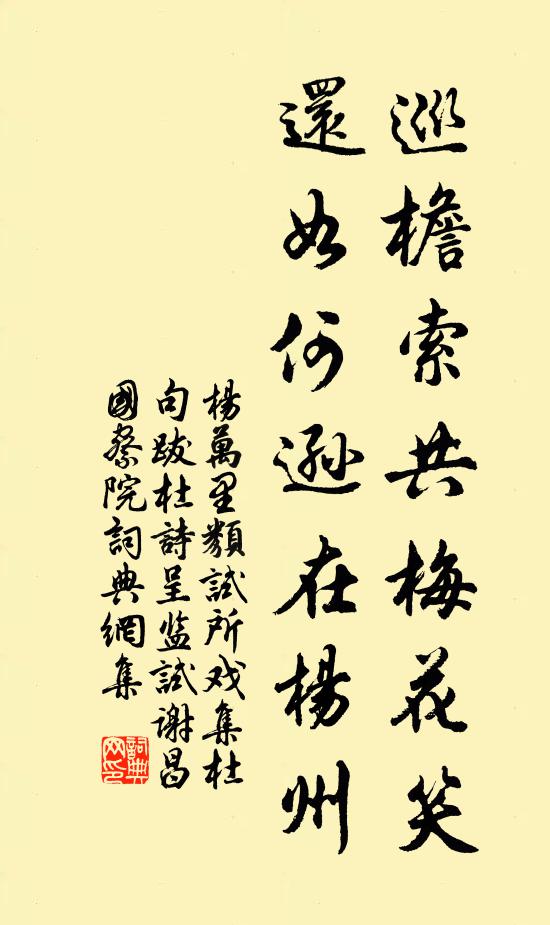 巡檐索共梅花笑
還如何遜在楊州
楊萬里類試所戏集杜
句跋杜詩呈监試谢昌
國察院詞典網集
詞典
网印